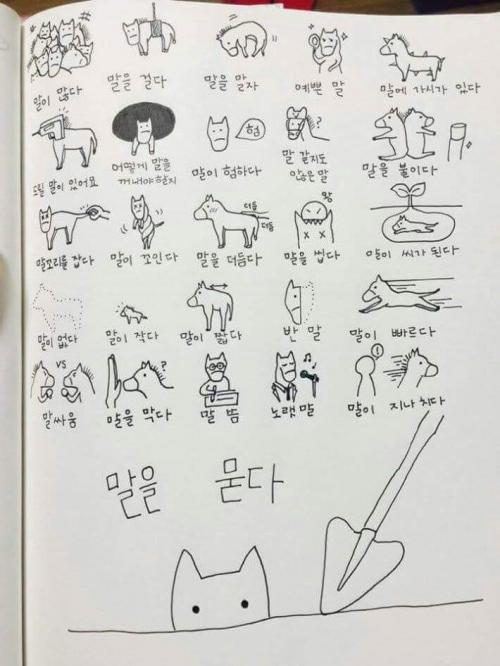 말이 많다
말을 걸다
말을 말자
예쁜 말
말에 가시가 있다
드릴 말이 있어요
어떻게 말을
꺼내야 할지
험
말이 험하다
말 같지도
않은 말
?
말을 붙이다
말꼬리를 잡다
말이 꼬인다
더듬
더듬
말을 더듬다
왕
말을 씹다
말이 씨가 된다
말이 없다
말이 작다
말이 짧다
반 말
말이 빠르다
VS
말싸움
?
말을 막다
말 뜸
노랫말
!
말이 지나치다
말을 묻다